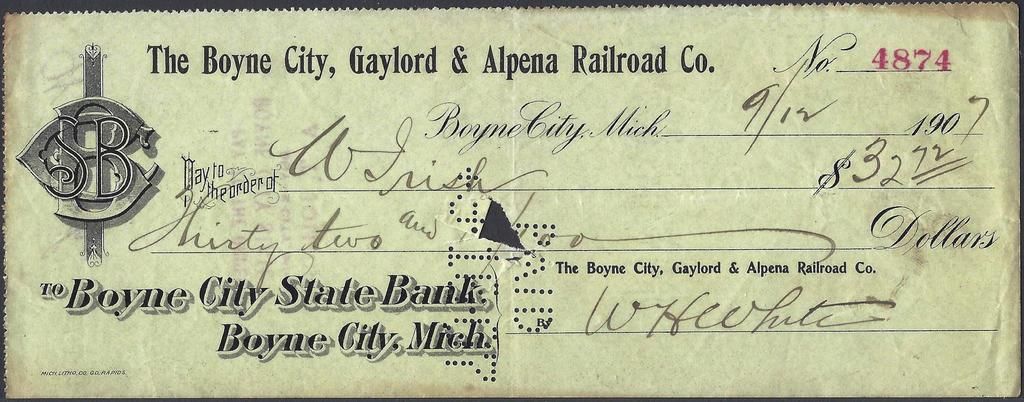 The Boyne City, Gaylord & Alpena Railroad Co. No. 4874
Boyne City, Mich. 9/12 1907
Pay to the order of W Irish $32 72
Thirty two and /100 Dollars
The Boyne City, Gaylord & Alpena Railroad Co.
TO Boyne City State Bank,
Boyne City, Mich.
BY W H White
MICH. LITHO. CO. GD. RAPIDS.